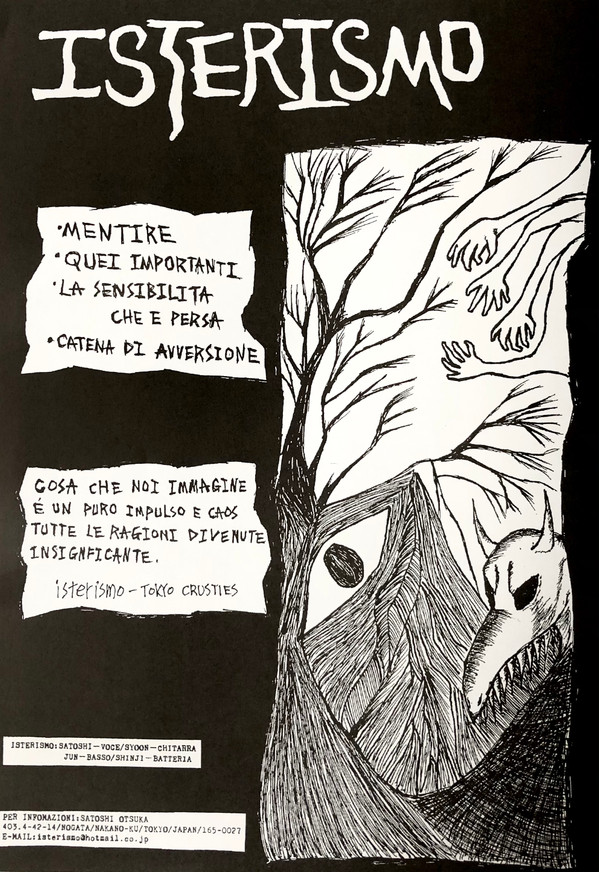 ISTERISMO
•MENTIRE
•QUEI IMPORTANTI
•LA SENSIBILITA
CHE E PERSA
•CATENA DI AVVERSIONE
COSA CHE NOI IMMAGINE
É UN PURO IMPULSO E CAOS
TUTTE LE RAGIONI DIVENUTE
INSIGNFICANTE.
isterismo – TOKYO CRUSTIES
ISTERISMO:SATOSHI-VOCE/SYOON-CHITARRA
JUN-BASSO/SHINJI-BATTERIA
PER INFOMAZIONI:SATOSHI OTSUKA
403.4-42-14/NOGATA/NAKANO-KU/TOKYO/JAPAN/165-0027
E-MAIL:isterismo@hotmail.co.jp